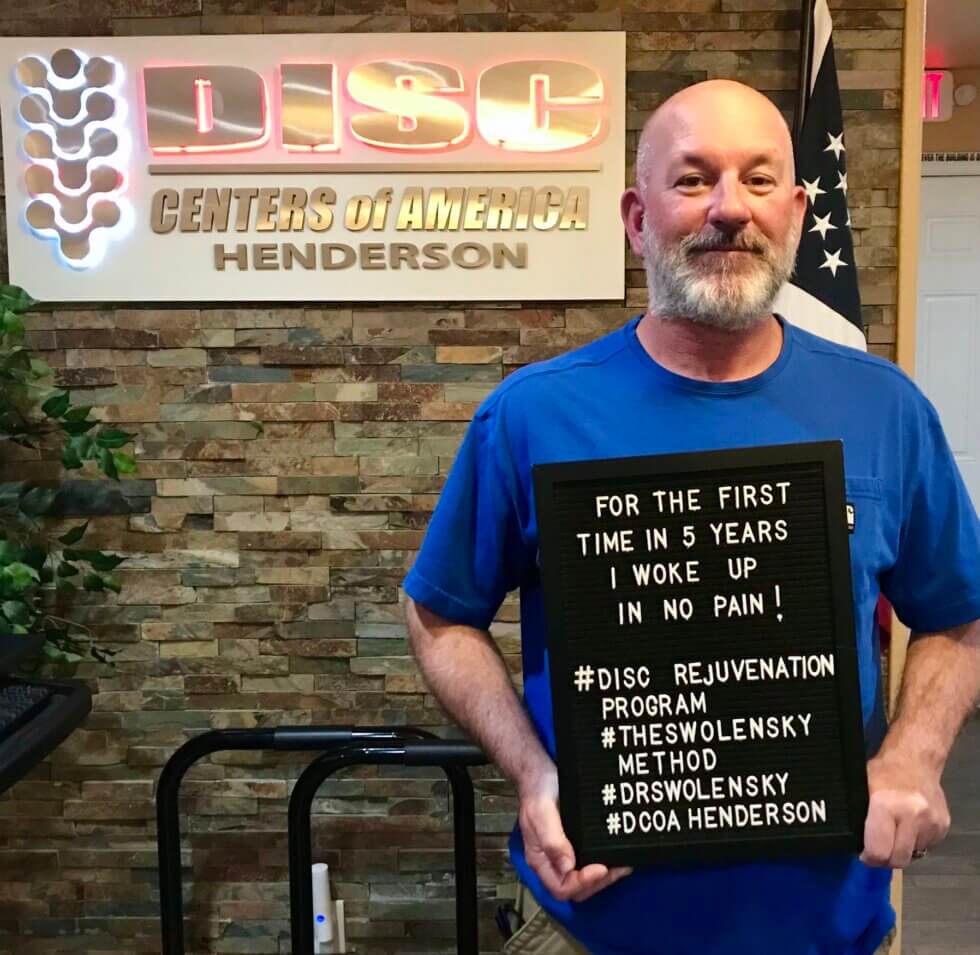 DISC
CENTERS of AMERICA
HENDERSON
FOR THE FIRST
TIME IN 5 YEARS
I WOKE UP
IN NO PAIN!
#DISC REJUVENATION
PROGRAM
#THESWOLENSKY
METHOD
#DRSWOLENSKY
#DCOA HENDERSON